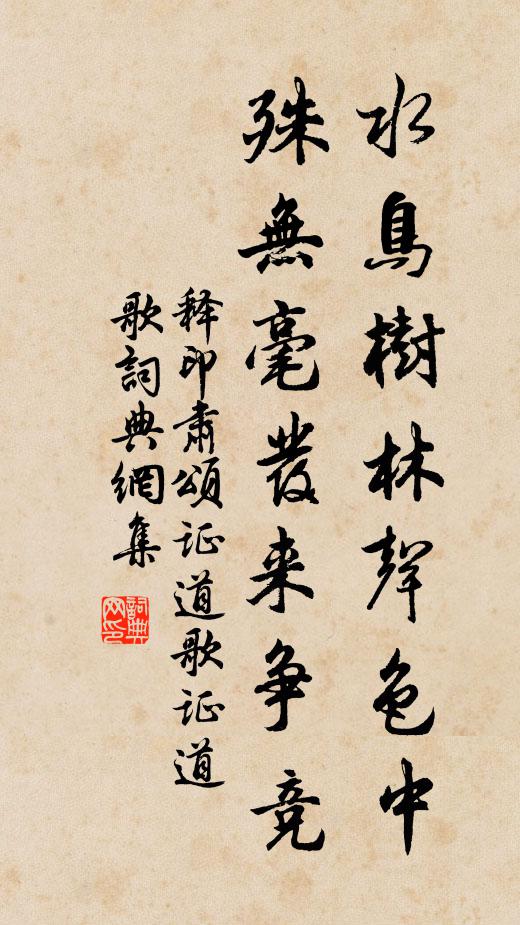 水鳥樹林聲色中
殊無毫發来爭竞
释印肃頌证道歌证道
歌詞典網集
詞典网印